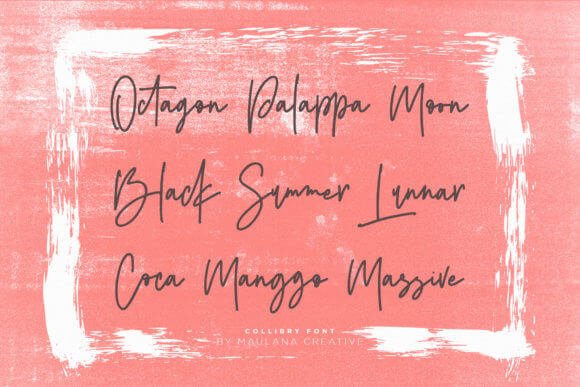 Octagon Palappa Moon
Black Summer Lunnar
Coca Manggo Massive
COLLIBRY FONT
BY MAULANA CREATIVE